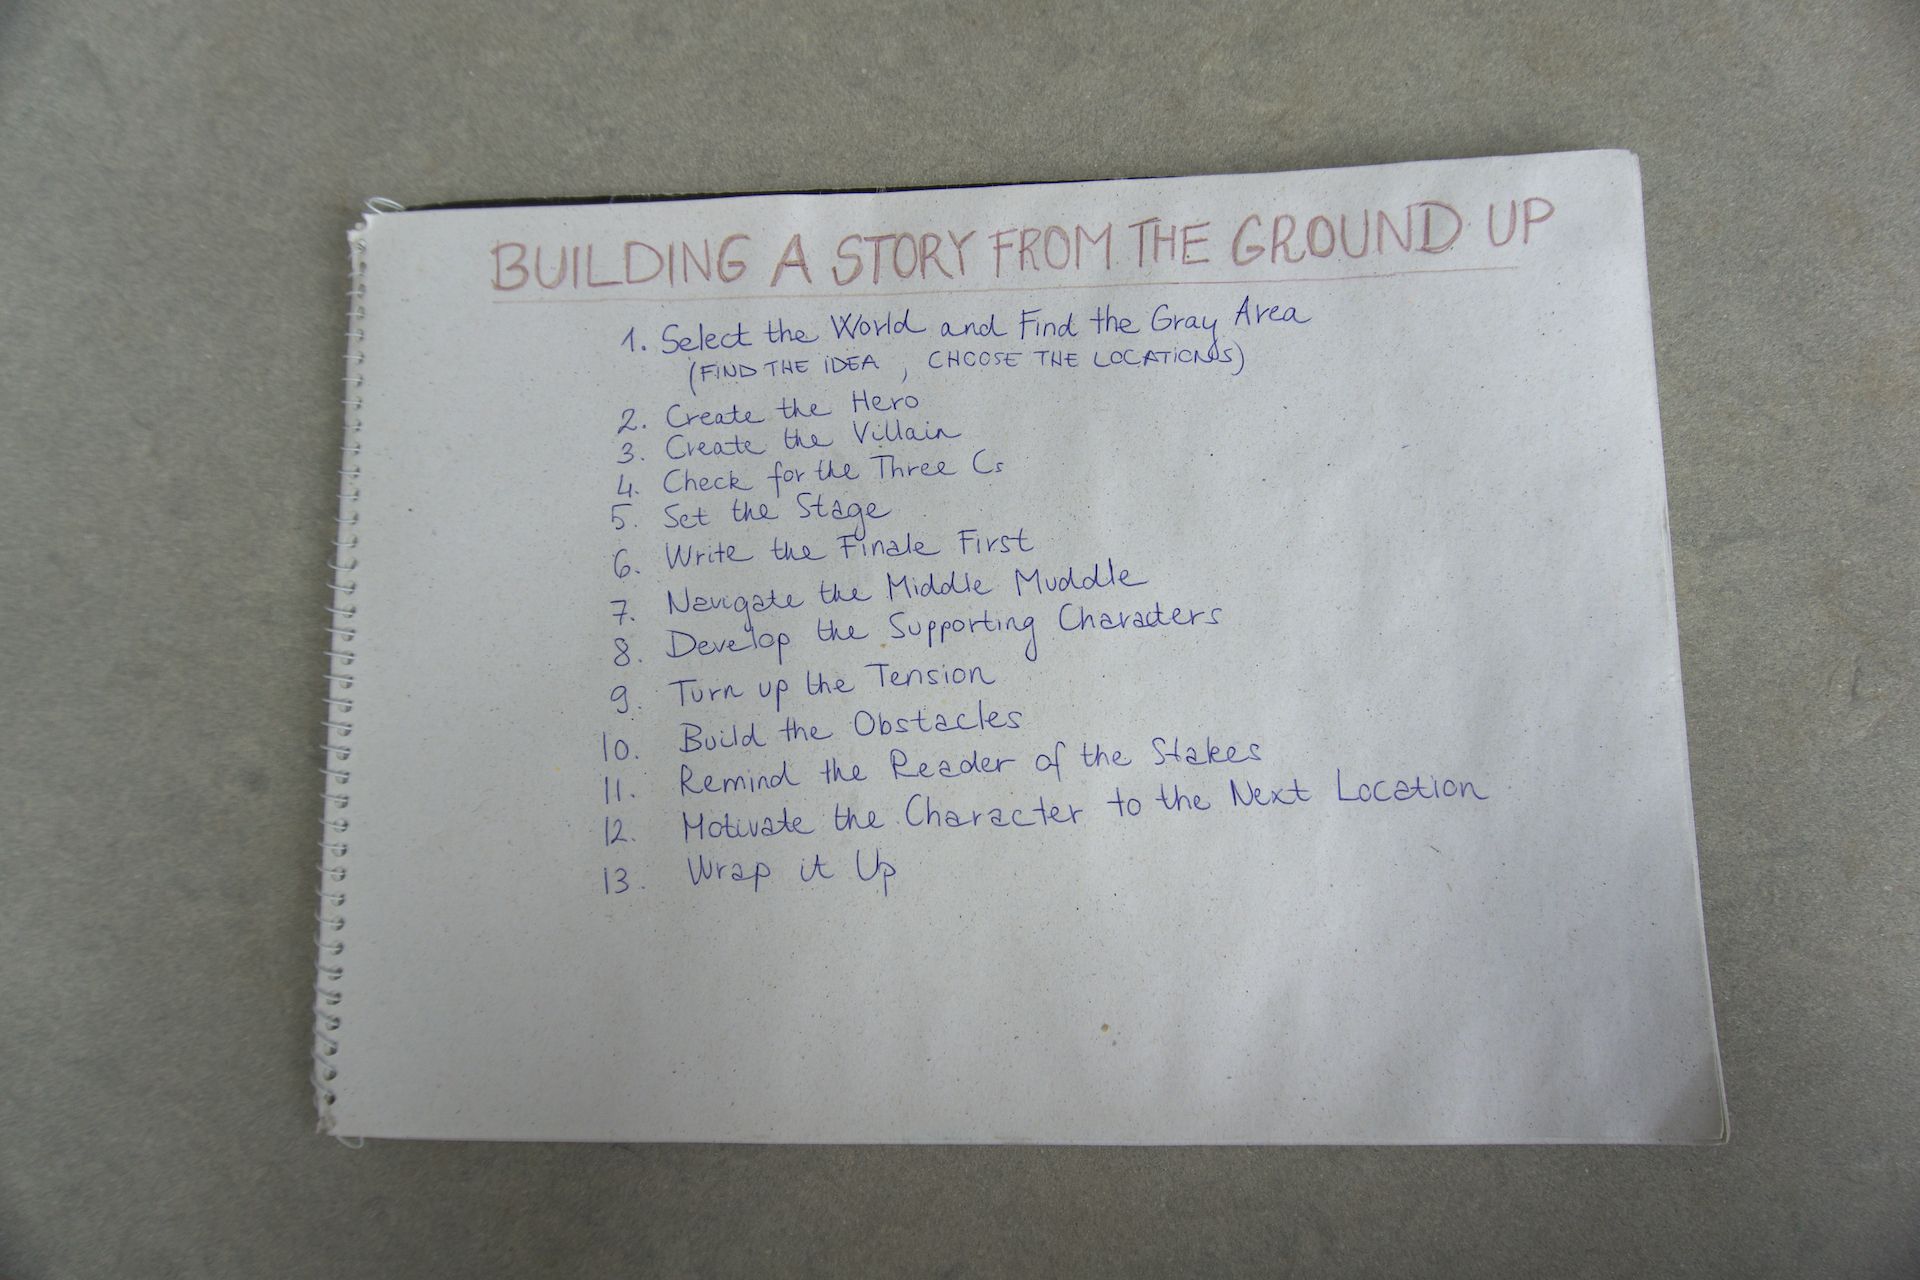 BUILDING A STORY FROM THE GROUND UP
1. Select the World and Find the Gray Area
(FIND THE IDEA , CHOOSE THE LOCATIONS)
2. Create the Hero
3. Create the Villain
4. Check for the Three Cs
5. Set the Stage
6. Write the Finale First
7. Navigate the Middle Muddle
8. Develop the Supporting Characters
9. Turn up the Tension
10. Build the Obstacles
11. Remind the Reader of the Stakes
12. Motivate the Character to the Next Location
13. Wrap it Up